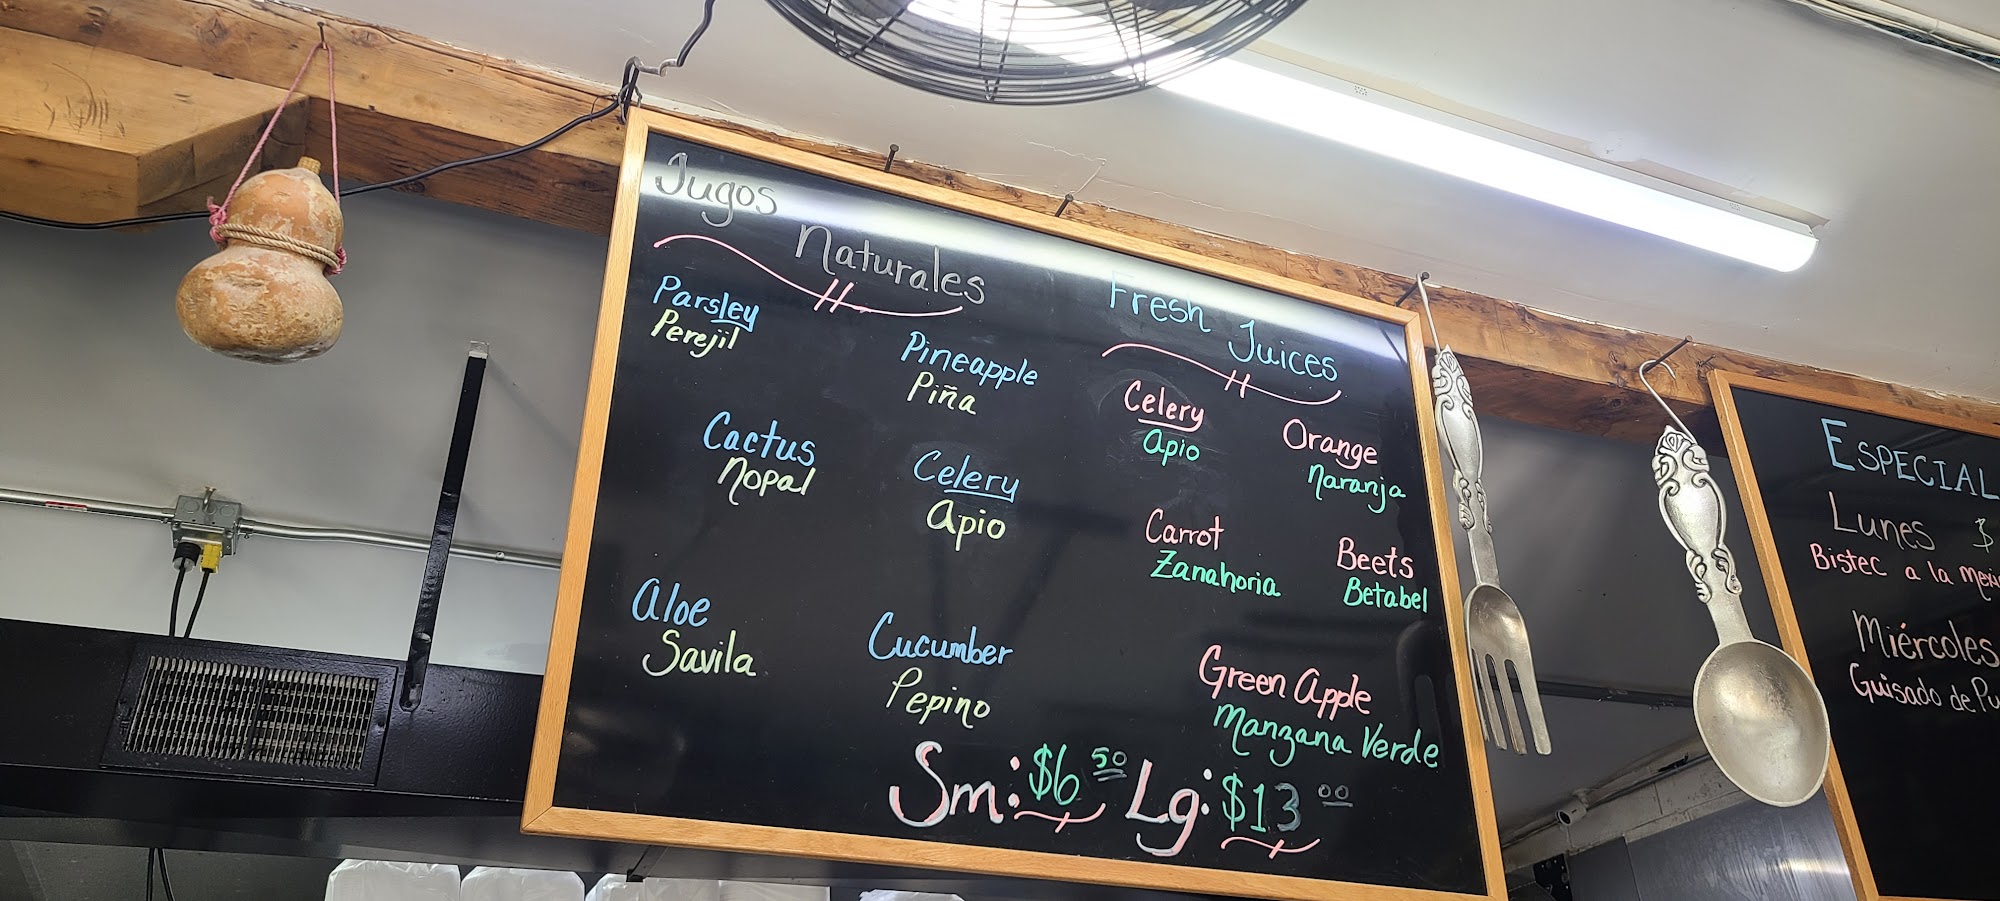 Jugos
Naturales
Parsley
Perejil
Pineapple
Piña
Cactus
Nopal
Celery
Apio
Aloe
Savila
Cucumber
Pepino
Fresh Juices
Celery
Apio
Orange
Naranja
Carrot
Zanahoria
Beets
Betabel
Green Apple
Manzana Verde
Sm: $6 50 Lg: $13 00
ESPECIAL
Lunes $
Bistec a la
Miércoles
Guisado de